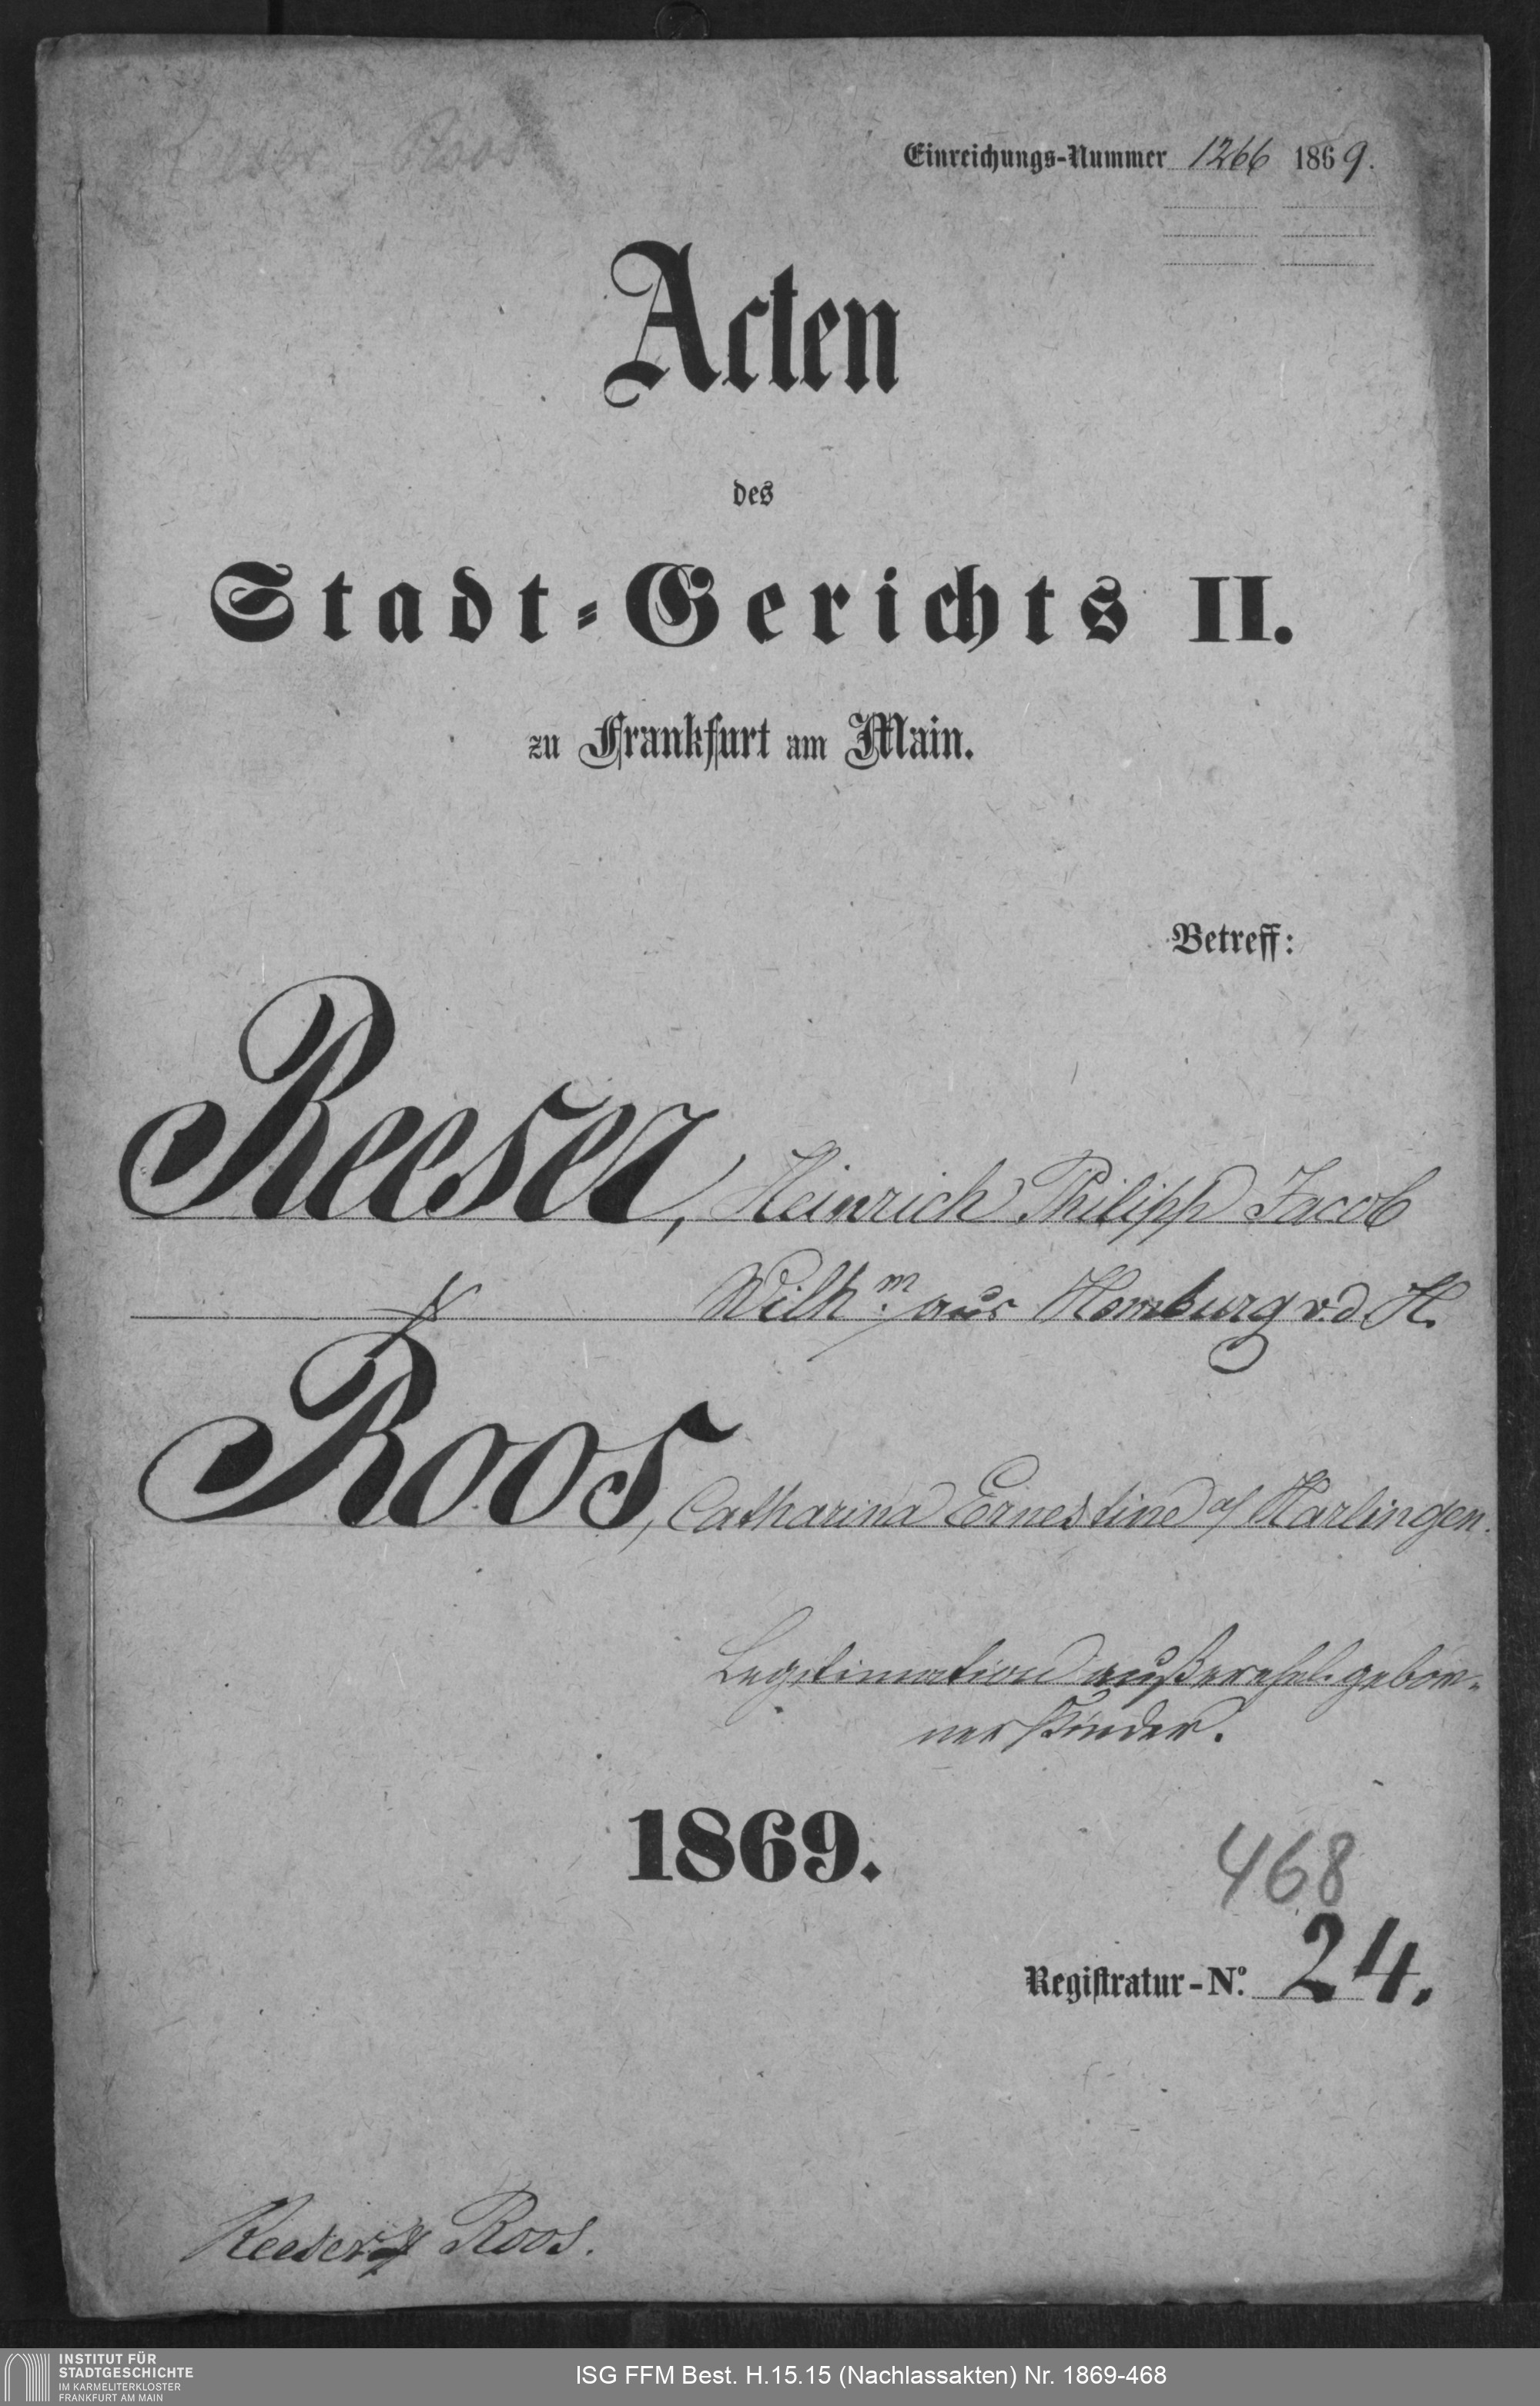 Einreichungs-Nummer 1266 1869.
Acten
des
Stadt-Gerichts II.
zu Frankfurt am Main.
Betreff:
Reeser, Heinrich Philipp Jacob
Wilhm. aus Homburg v. d. H.
Roos, Catharina Ernestine a/ Harlingen.
Legitimation außerehel. gebor-
ner Kinder.
1869.
468
Registratur-No. 24.
Reeser Roos.
INSTITUT FÜR
STADTGESCHICHTE
IM KARMELITERKLOSTER
FRANKFURT AM MAIN
ISG FFM Best. H.15.15 (Nachlassakten) Nr. 1869-468